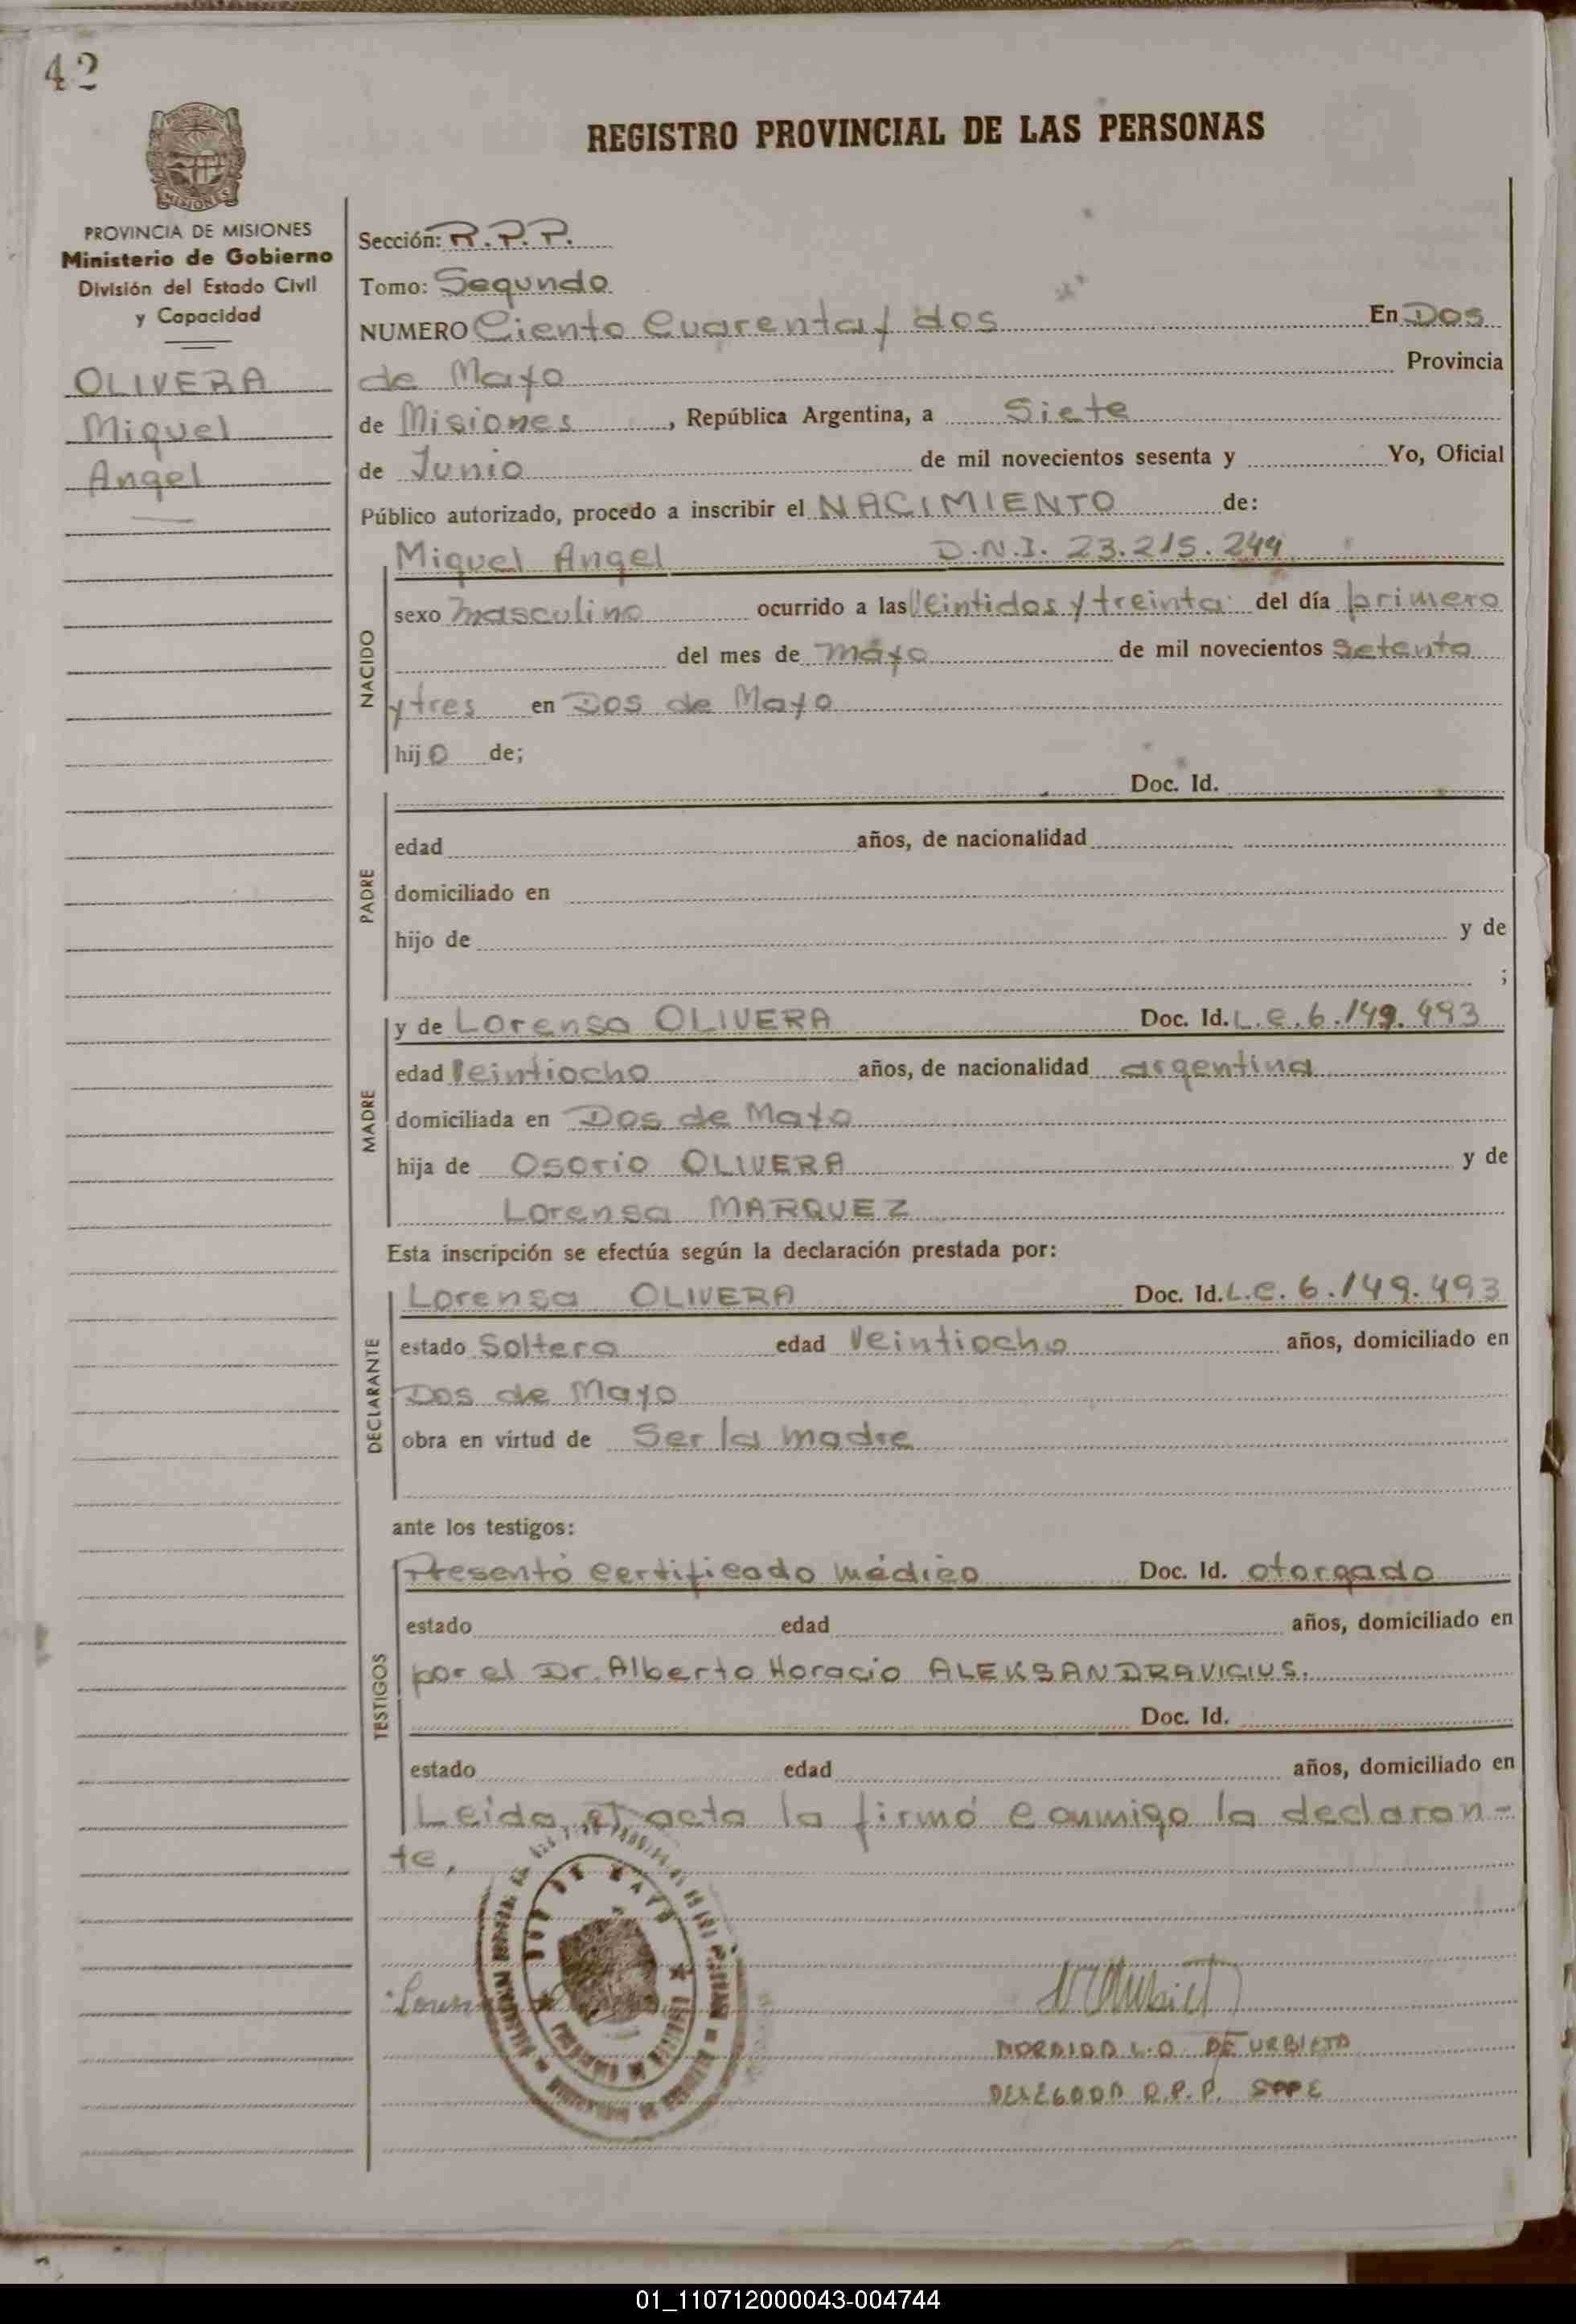 42
REGISTRO PROVINCIAL DE LAS PERSONAS
PROVINCIA DE MISIONES
Ministerio de Gobierno
División del Estado Civil
y Capacidad
OLIVERA
Miguel
Angel
Sección: R.P.P.
Tomo: Segundo
NUMERO Ciento Cuarenta y dos En Dos
de Mayo Provincia
de Misiones, República Argentina, a Siete
de Junio de mil novecientos sesenta y Yo, Oficial
Público autorizado, procedo a inscribir el NACIMIENTO de:
NACIDO
Miguel Angel D.N.I. 23.215.244
sexo masculino ocurrido a las Veintidos y treinta del día primero
del mes de mayo de mil novecientos setenta
y tres en Dos de Mayo
hijo de;
PADRE
Doc. Id.
edad años, de nacionalidad
domiciliado en
hijo de y de
;
MADRE
y de Lorensa OLIVERA Doc. Id. L.C. 6.149.493
edad Veintiocho años, de nacionalidad argentina
domiciliada en Dos de Mayo
hija de Osorio OLIVERA y de
Lorensa MARQUEZ
Esta inscripción se efectúa según la declaración prestada por:
DECLARANTE
Lorensa OLIVERA Doc. Id. L.C. 6.149.493
estado Soltera edad Veintiocho años, domiciliado en
Dos de Mayo
obra en virtud de Ser la madre
ante los testigos:
TESTIGOS
Presentó certificado médico Doc. Id. otorgado
estado edad años, domiciliado en
por el Dr. Alberto Horacio ALEKSANDRAVICIUS.
Doc. Id.
estado edad años, domiciliado en
Leida, el acta la firmó conmigo la declaran-
te,
DOS DE MAYO
DE URBIETA
DELEGADA R.P.P.
01_110712000043-004744